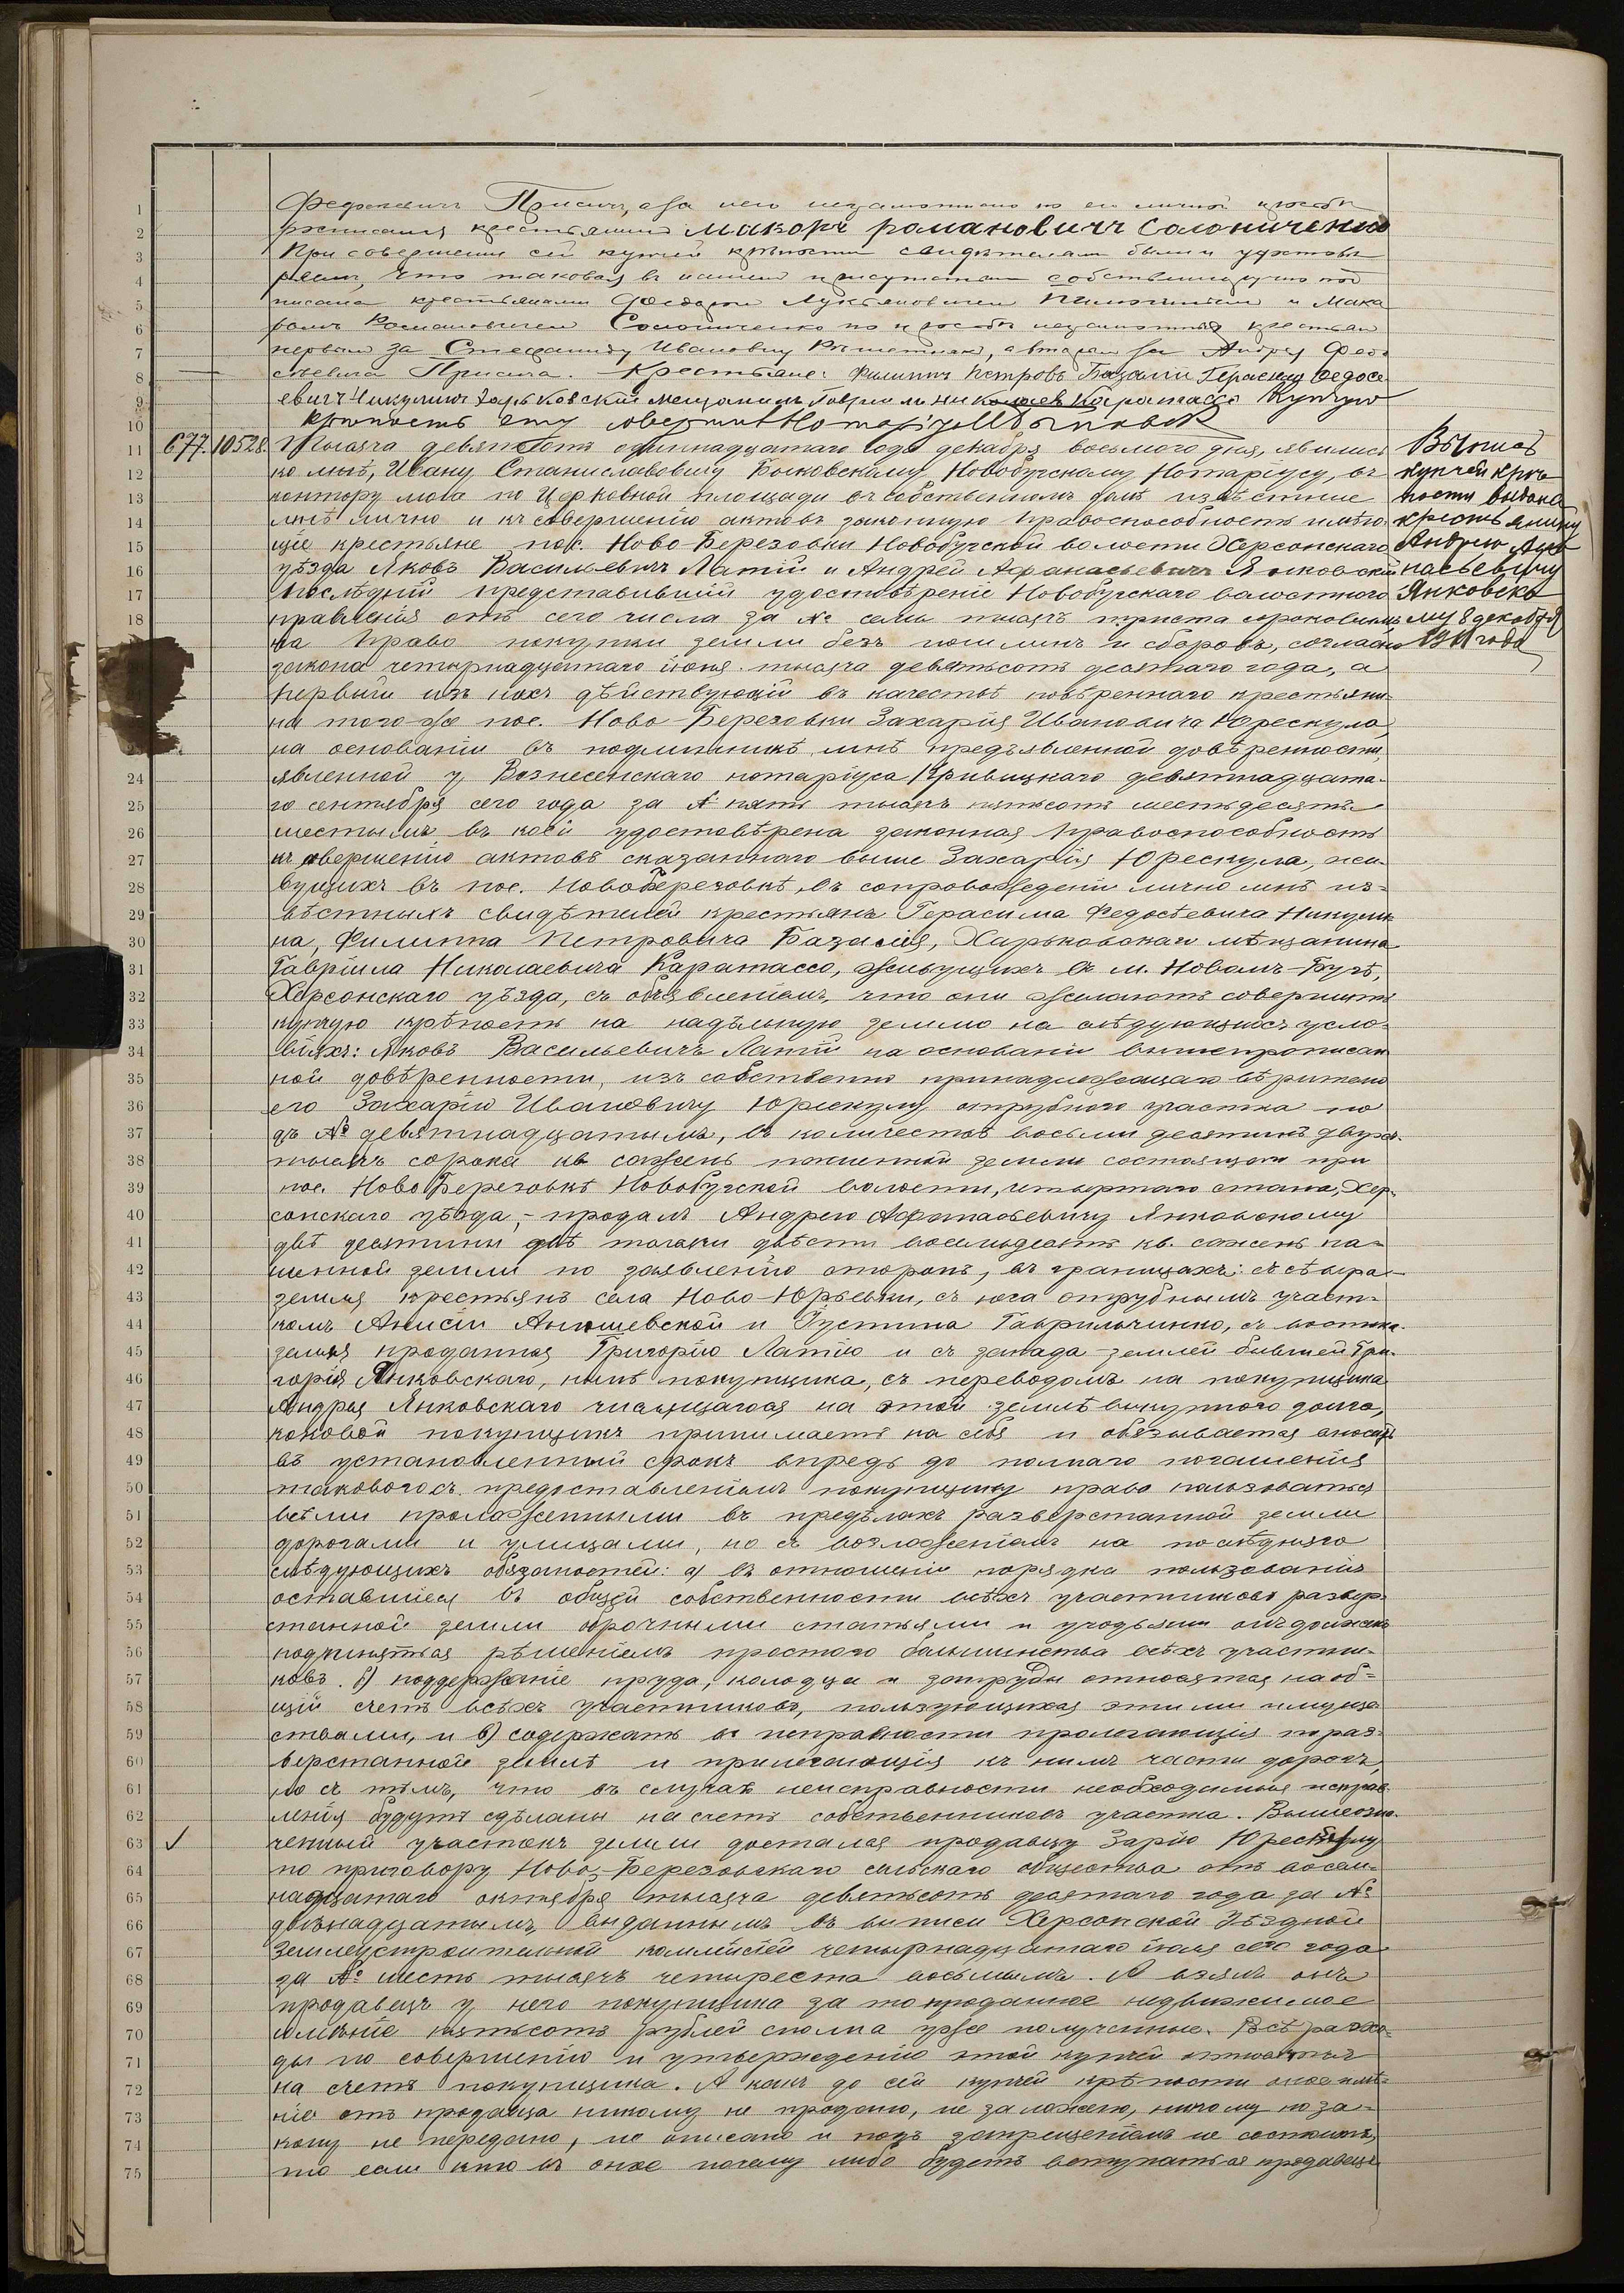 Присич, а за него неграмотного по его личной просьбѣ
росписался крестьянинъ Макаръ романовичъ Солониченко
При совершении сей купчей крѣпости свидѣтелями были и удостовѣ
ряемъ, что таковая въ нашем присутствии собственноручно под
писана крестьянами Лукьяновичем и Мака
ромъ Романовичем Солониченко по просьбѣ неграмотных крестьян
первым за Степаниду Ивановну, а вторым за Андрея Федо
сѣевича Присича. Крестьяне: Филиппъ Петровъ Базалий Герасимъ Федосе
евичъ Никулинъ Харьковский мещанинъ Гавриилъ Николаевъ Каратассо Купчую
крѣпость эту совершил Нотаріусъ
677. 10528. Тысяча девятьсотъ одиннадцатаго года декабря восьмого дня, явились
ко мнѣ, Ивану Станиславовичу Новобугскому Нотаріусу, въ
контору мою по Церковной площади въ собственномъ домѣ извѣстные
мнѣ лично и къ совершенію актовъ законную правоспособность имѣю
щіе крестьяне пос. Ново-Березовки Новобугской волости Херсонскаго
уѣзда Яковъ Васильевичъ Латій и Андрей Афанасьевичъ Янковскій
послѣдній представившій удостовѣреніе Новобугскаго волостного
правленія отъ сего числа за № семь тысячъ триста
на право покупки земли безъ пошлинъ и сборовъ, согласно
закона четырнадцатаго іюня тысяча девятьсотъ десятаго года, а
первый изъ нихъ дѣйствующій въ качествѣ повѣреннаго крестьяни
на того-же пос. Ново-Березовки Захарія Ивановича Юрескула,
на основаніи въ подлинникѣ мнѣ предъявленной довѣренности,
явленной у Вознесенскаго нотаріуса Кривицкаго девятнадцата-
го сентября сего года за № пять тысячъ пятьсотъ шестьдесятъ
шестымъ въ коей удостовѣрена законная правоспособность
къ совершенію актовъ сказаннаго выше Захарія Юрескула, жи-
вущихъ въ пос. Ново Березовкѣ, въ сопровожденіи лично мнѣ из-
вѣстныхъ свидѣтелей крестьянъ Герасима Федосѣевича Никули
на, Филиппа Петровича Базалія, Харьковскаго мѣщанина
Гавріила Николаевича Каратассо, живущихъ въ м. Новомъ-Бугѣ,
Херсонскаго уѣзда, съ объявленіемъ, что они желаютъ совершить
купчую крѣпость на надѣльную землю на слѣдующихъ усло-
віяхъ: Яковъ Васильевичъ Латій на основаніи вышепрописан
ной довѣренности, изъ собственно принадлежащаго вѣрителю
его Захарію Ивановичу Юрескулу отрубного участка по
дъ № девятнадцатымъ, въ количествѣ восьми десятинъ двухъ
тысячъ сорока кв сажень пахатной земли состоящаго при
пос. Ново Березовкѣ Новобугской волости, четвертаго стана, Хер-
сонскаго уѣзда, - продалъ Андрею Афанасьевичу Янковскому
двѣ десятины двѣ тысячи двѣсти восемьдесятъ кв. сажень па-
хатной земли по заявленію сторонъ, въ границахъ: съ сѣвера
земля крестьянъ села Ново-Юрьевки, съ юга отрубнымъ участ-
комъ Анисіи и Устина Гаврильченко, съ востока
земля проданная Григорію Латію и съ запада - землей бывшей Гри-
горія Янковскаго, нынѣ покупщика, съ переводомъ на покупщика
Андрея Янковскаго числящагося на этой землѣ выкупного долга,
каковой покупщикъ принимаетъ на себя и обязывается вносить
въ установленный срокъ впредь до полнаго погашенія
такового съ предоставленіемъ покупщику права пользоваться
всѣми проложенными въ предѣлахъ разверстанной земли
дорогами и улицами, но съ возложеніемъ на послѣдняго
слѣдующихъ обязаностей: а) въ отношеніи порядка пользованія
оставшіеся въ общей собственности всѣхъ участниковъ развер-
станной земли оброчными статьями и угодьями онъ долженъ
подчиняться рѣшеніемъ простого большинства всѣхъ участни-
ковъ. б) поддержаніе пруда, колодца и запруды относятся на об-
щій счетъ всѣхъ участниковъ, пользующихся этими имуще
ствами, и в) содержать въ исправности пролегающія по раз-
верстанной землѣ и прилегающія къ нимъ части дорогъ,
но съ тѣмъ, что въ случаѣ неисправности необходимыя исправ
ленія будутъ сдѣланы на счетъ собственниковъ участка. Вышеозна
ченный участокъ земли достался продавцу Зарію Юрескулу
по приговору Ново-Березовскаго сельскаго общества отъ восем-
надцатаго октября тысяча девятьсотъ десятаго года за №
двѣнадцатымъ, выданнымъ въ выписи Херсонской Уѣздной
Землеустроительной коммисіей четырнадцатаго іюля сего года
за № шесть тысячъ четыреста восьмымъ. А взялъ онъ
продавецъ у него покупщика за то проданное недвижимое
имѣніе пятьсотъ рублей сполна уже полученные. Всѣ расхо-
ды по совершенію и утвержденію этой купчей относятся
на счетъ покупщика. А какъ до сей купчей крѣпости оное имѣ-
ніе отъ продавца никому не продано, не заложено, никому по за-
кону не передано, не описано и подъ запрещеніемъ не состоитъ,
то если кто въ оное почему либо будетъ вступаться продавецъ
Выпись
купчей крѣ
пости выдана
крестьянину
Андрею Афа
насьевичу
Янковско
му 8 декабря
1911 года